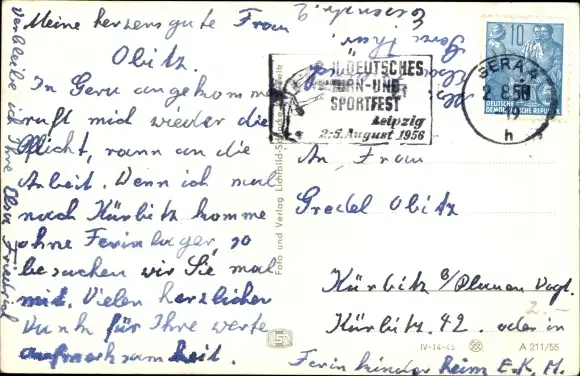 Meine herzensgute Frau
Obitz.
In Gera angekommen
ruft mich wieder die
Pflicht, rann an die
Arbeit. Wenn ich mal
nach Kürbitz komme
ohne Ferinlager, so
besuchen wir Sie mal
mit. Vielen herzlichen
Dank für Ihre werte
Aufmerksamkeit.
Verbleibe ich Ihre Elsa Friedrich
Gera Thür.
II. DEUTSCHES
TURN-UND
SPORTFEST
Leipzig
2.-5. August 1956
GERA 1
2.8.56
12
h
10
DEUTSCHE
DEMOKRATISCHE REPUBLIK
An Frau
Gredel Obitz
Kürbitz b/Plauen Vogl.
Kürbitz. 42. oder in
Ferin kinder heim E. K. M.
2.-
Foto und Verlag Lichtbild-
IV-14-45
A 211/55